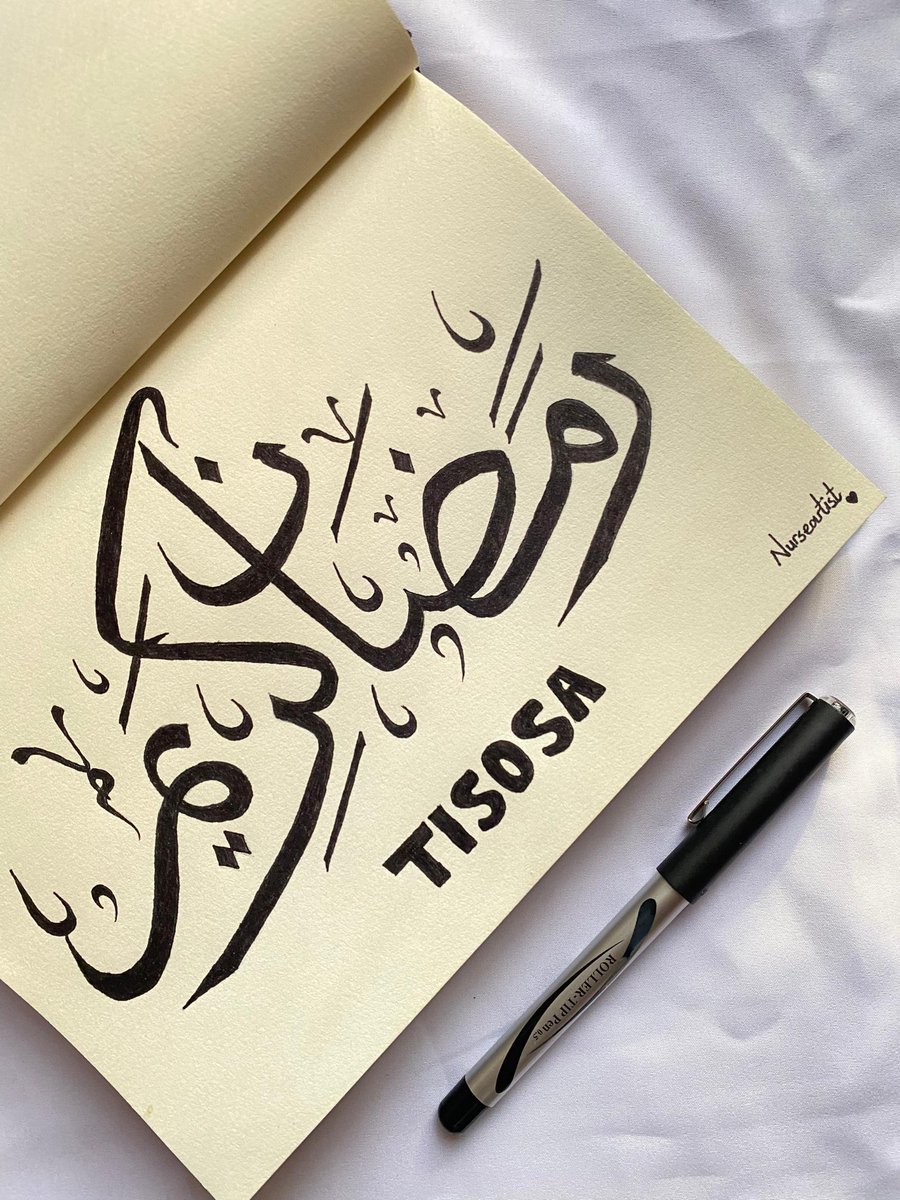 رمضان كريم
TISOSA
Nurseartist
ROLLER-TIP Pen 0.5